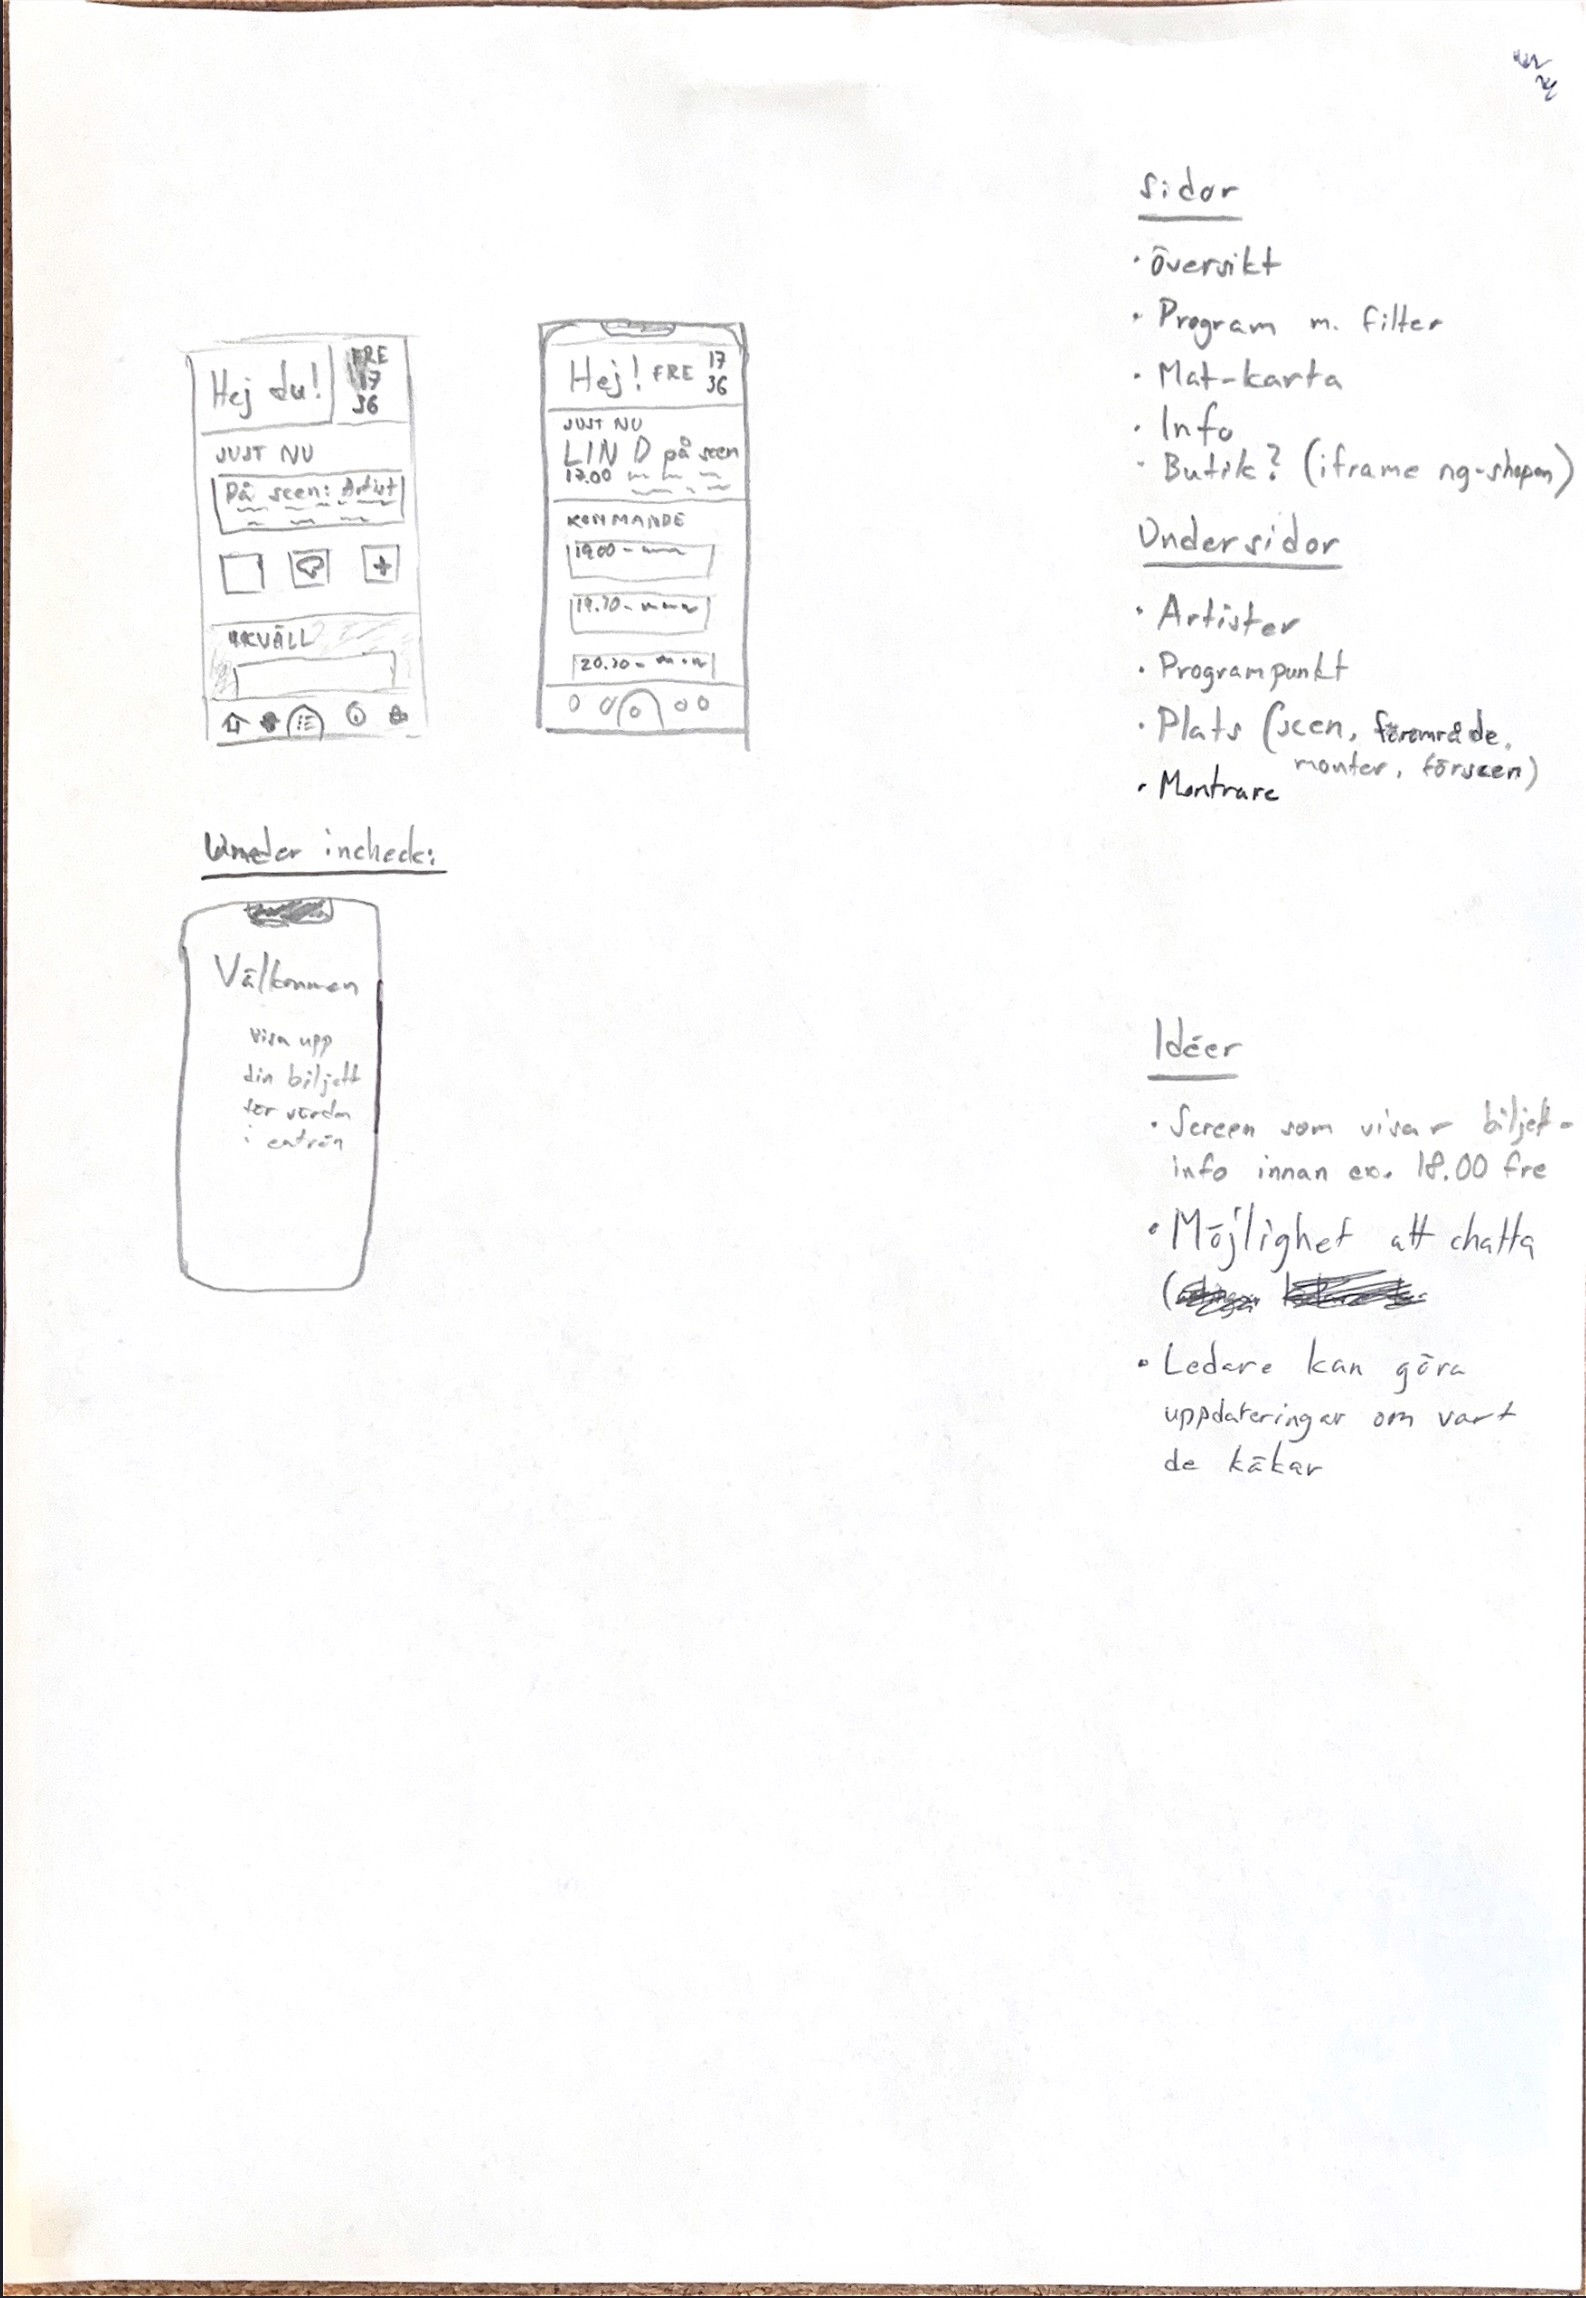 Hej du!
FRE
17
36
JUST NU
På scen: Artist
IKVÄLL
Hej! FRE 17
36
JUST NU
LIND på scen
17.00
KOMMANDE
19.00 -
19.30 -
20.30 -
Under incheck:
Välkommen
Visa upp
din biljett
för värden
i entrén
Sidor
· Översikt
· Program m. filter
· Mat-karta
· Info
· Butik? (iframe ng-shopen)
Undersidor
· Artister
· Programpunkt
· Plats (scen, förområde,
monter, förscen)
· Montrare
Idéer
· Screen som visar biljett-
info innan ex. 18.00 fre
· Möjlighet att chatta
(
· Ledare kan göra
uppdateringar om vart
de käkar